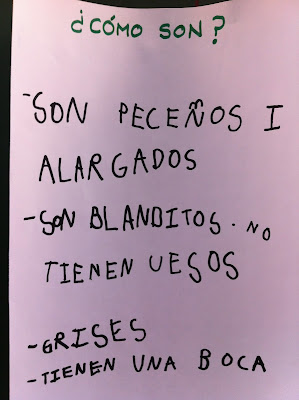 ¿CÓMO SON?
-SON PECEÑOS I
ALARGADOS
-SON BLANDITOS. NO
TIENEN UESOS
-GRISES
-TIENEN UNA BOCA